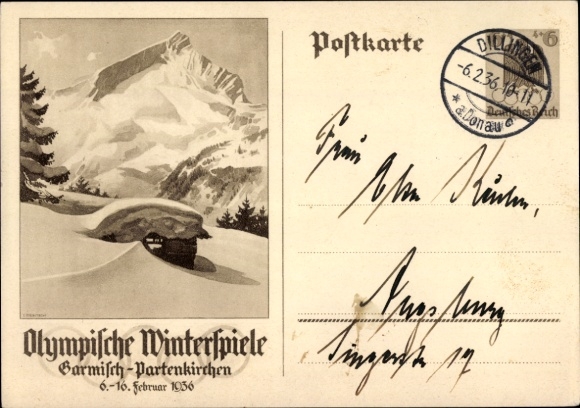 Olympische Winterspiele
Garmisch-Partenkirchen
6.-16. Februar 1936
Postkarte
4+6
Deutsches Reich
DILLINGEN
-6.2.36.10-11
* a.Donau a
Frau
Augsburg
17